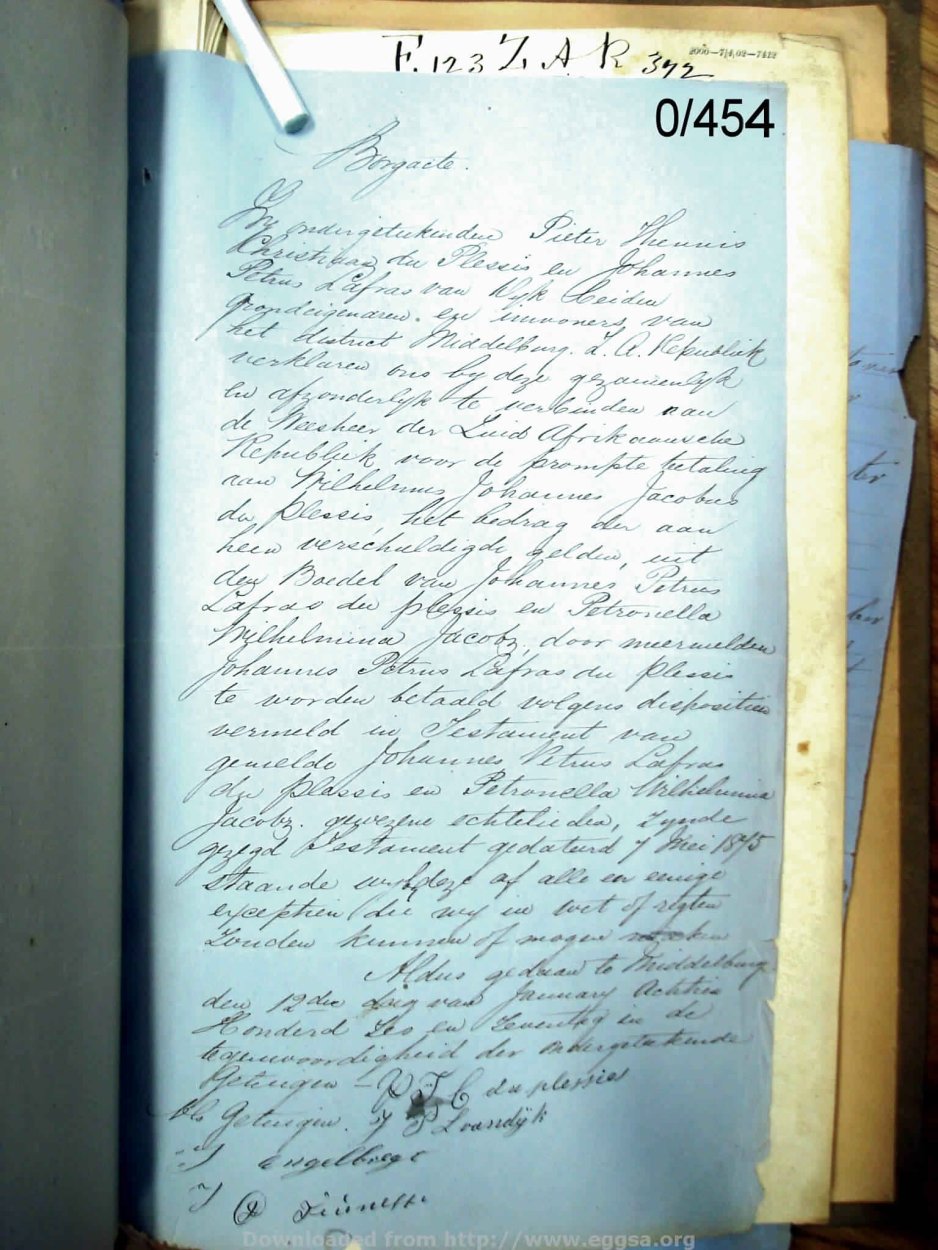 F. 123 Z. A. R 372
2000—7/4,02—7412
0/454
Borgacte.
Wy ondergetekenden Pieter Theunis
Christiaan du Plessis en Johannes
Petrus Lafras van Wyk beiden
grondeigenaren en inwoners van
het district Middelburg. Z. A. Republiek
verklaren ons by deze gezamenlyk
en afzonderlyk te verbinden aan
de Weesheer der Zuid Afrikaansche
Republiek voor de prompte betaling
aan Wilhelmus Johannes Jacobus
du Plessis, het bedrag der aan
hem verschuldigde gelden, uit
den Boedel van Johannes Petrus
Lafras du plessis en Petronella
Wilhelmina Jacobz, door meermelden
Johannes Petrus Lafras du Plessis
te worden betaald volgens dispositien
vermeld in Testament van
gemelde Johannes Petrus Lafras
du Plessis en Petronella Wilhelmina
Jacobz. gewezene echtelieden, zynde
gezegd Testament gedateerd 7 Mei 1875
staande deze af alle en eenige
exceptien die wy in wet of regten
zouden kunnen of mogen
Aldus gedaan te Middelburg
den 12de dag van January Achtien
Honderd Zes en Zeventig in de
tegenwoordigheid der ondergetekende
Getuigen — P T C du plessies
Als Getuigen. J P L vandÿk
engelbregt
Downloaded from http://www.eggsa.org